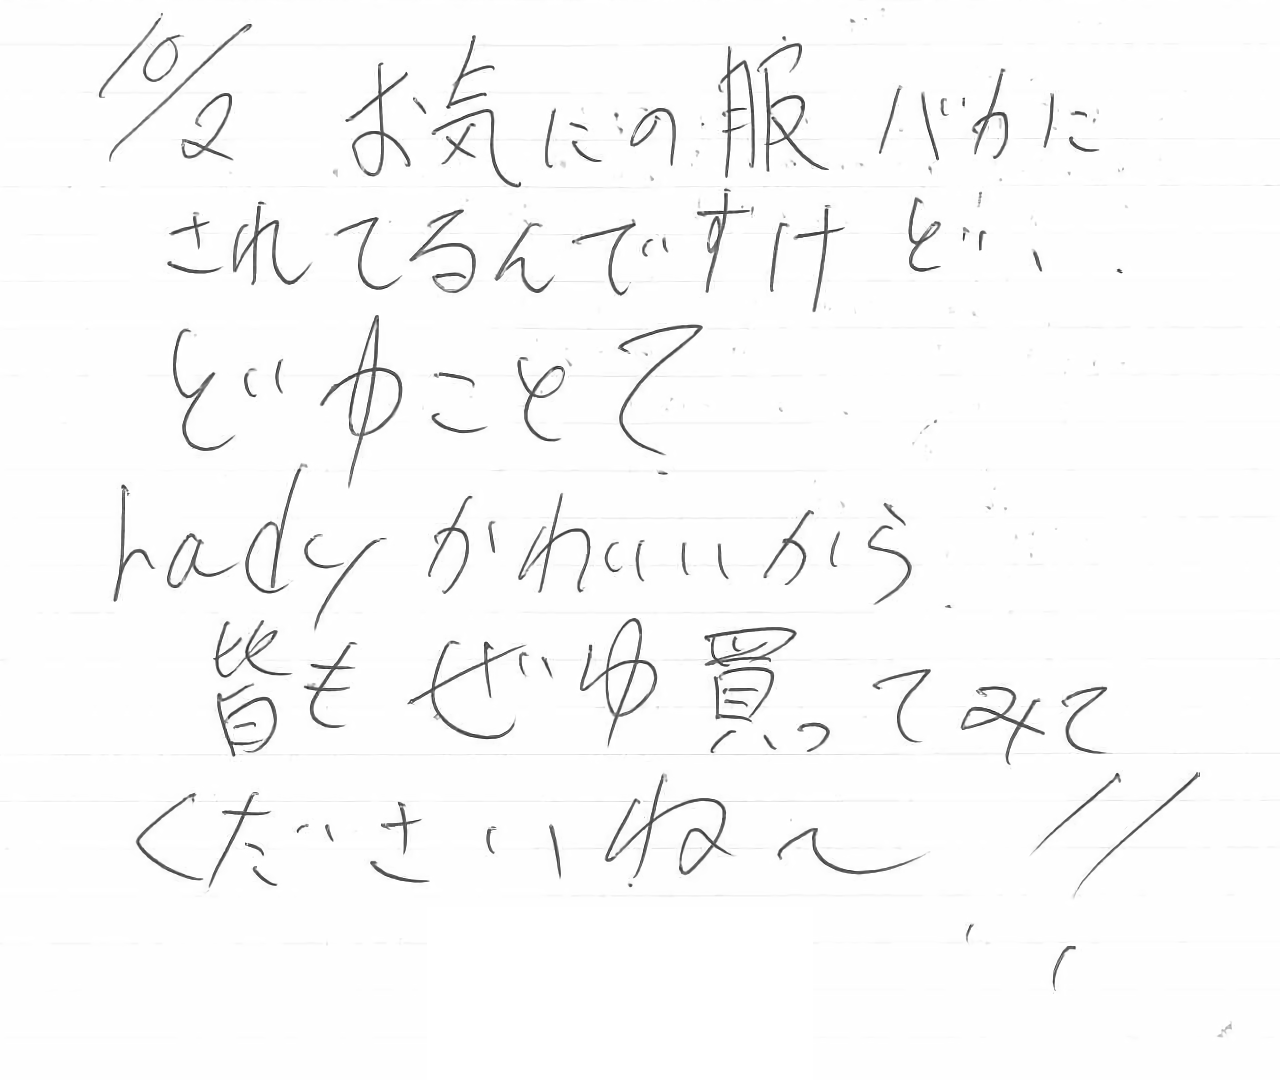 10/2 お気にの服 バカに
されてるんですけど、.
どゆことて
hady かわいいから
皆もぜひ買ってみて
くださいね〜!!